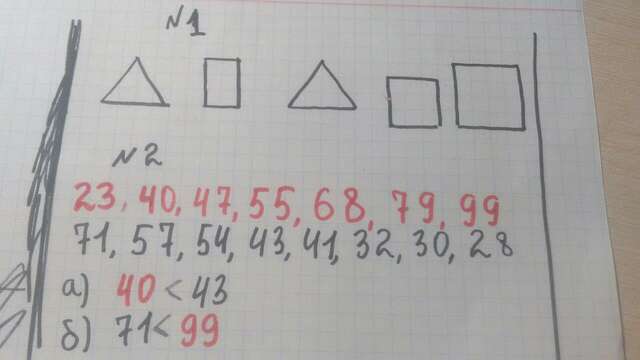 №1
№2
23, 40, 47, 55, 68, 79, 99
71, 57, 54, 43, 41, 32, 30, 28
а) 40 < 43
б) 71 < 99